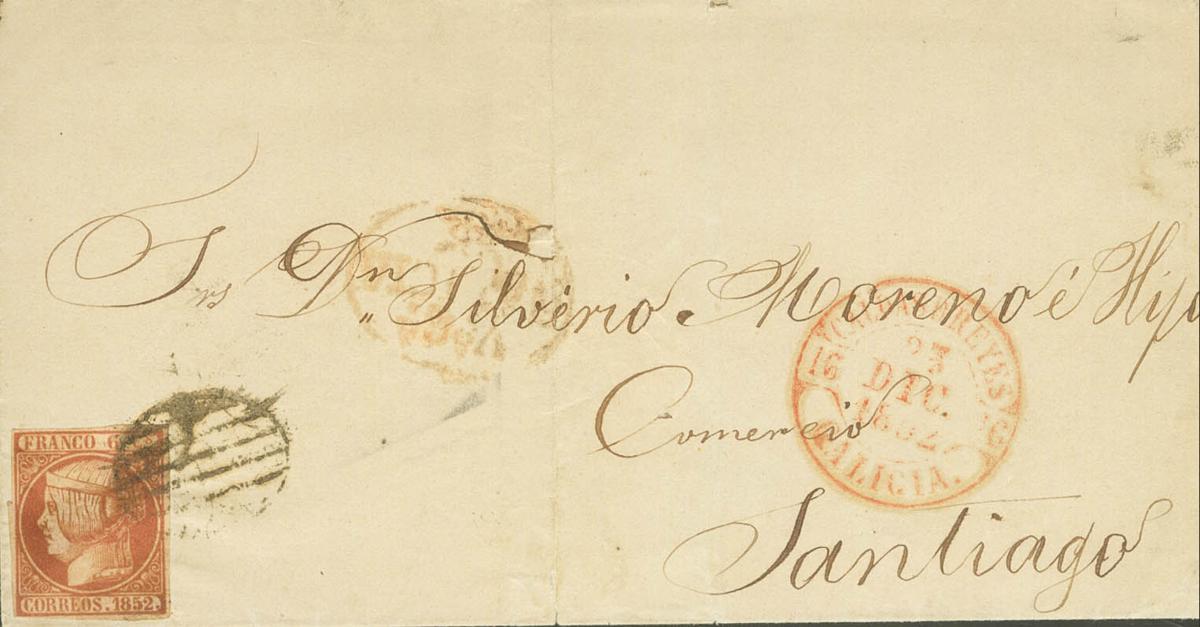 Srs Dn Silvério Moreno é Hijo
Comercio
Santiago
FRANCO 6
CORREOS. 1852.
REYES
16
23
DIC.
1852
GALICIA.